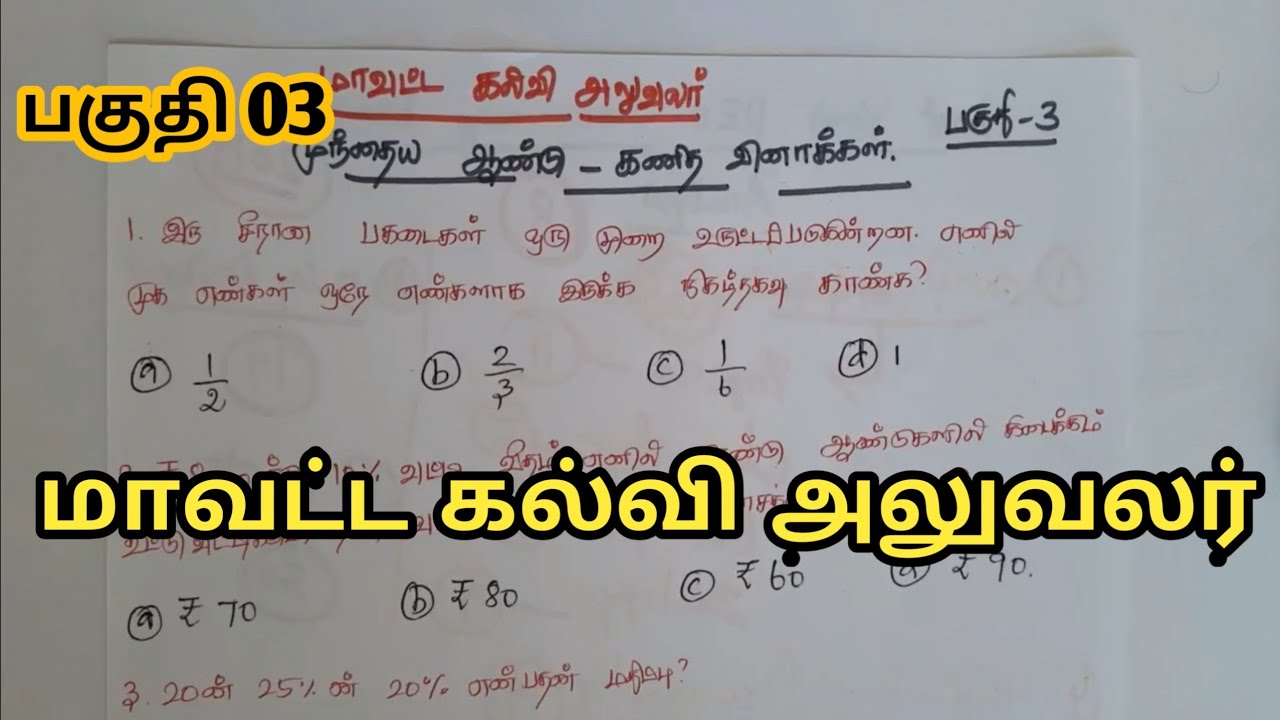 பகுதி 03
மாவட்ட கல்வி அலுவலர்
முந்தைய ஆண்டு - கணித வினாக்கள்.
பகுதி-3
1. இரு சீரான பகடைகள் ஒரு முறை உருட்டப்படுகின்றன. எனில்
முக எண்கள் ஒரே எண்களாக இருக்க நிகழ்தகவு காண்க?
a 1/2 b 2/3 c 1/6 d 1
வட்டி வீதம் எனில் ஆண்டுகளில் கிடைக்கும்
மாவட்ட கல்வி அலுவலர்
a ₹ 70 b ₹ 80 c ₹ 60 d ₹ 90.
3. 20ன் 25% ன் 20% என்பதன் மதிப்பு?